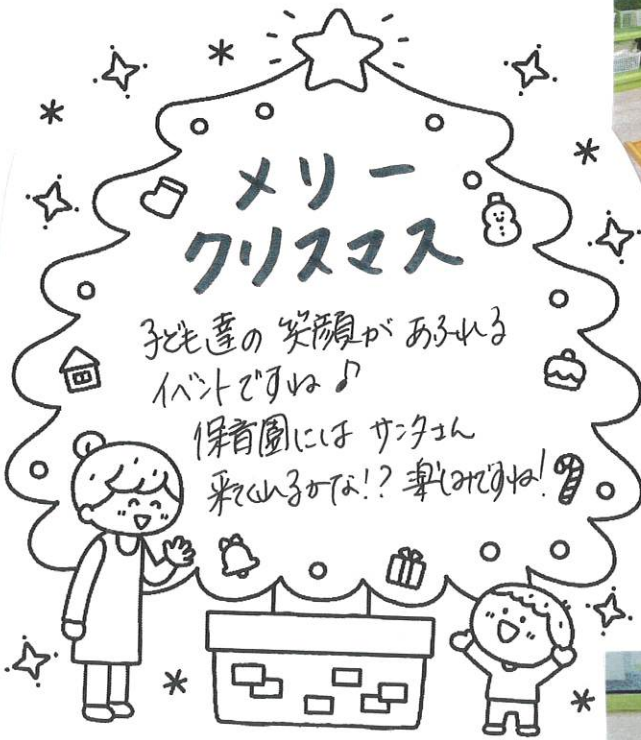 メリー
クリスマス
子ども達の笑顔があふれる
イベントですね♪
保育園にはサンタさん
来てくれるかな!?楽しみですね!